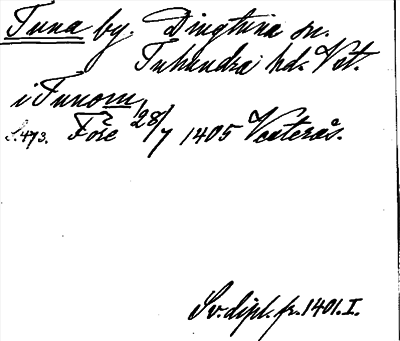 Tuna by. Dingtuna sn.
Tuhundra hd. Vst.
i Tunom,
S. 473. Före 28/7 1405 Västerås.
Sv. dipl. fr. 1401. I.